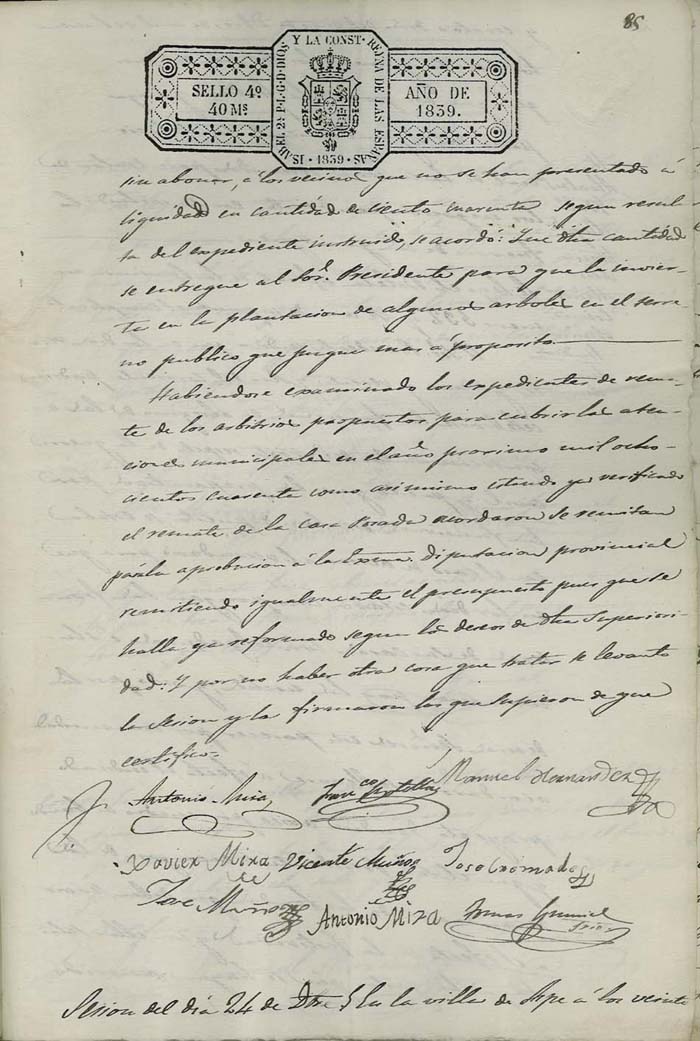 85
ISABEL 2ª P.L.G.D.DIOS Y LA CONST. REYNA DE LAS ESPAÑAS
SELLO 4º
40 Ms.
AÑO DE
1839.
1839
sin abonar, á los vecinos que no se han presentado á
liquidar en cantidad de ciento cuarenta segun resul-
ta del expediente instruido, se acordó: Que dha cantidad
se entregue al Sor. Presidente para que la invier-
ta en la plantacion de algunos arboles en el terre-
no publico que juzgue mas á proposito.
Habiendose examinado los expedientes de rema-
te de los arbitrios propuestos para cubrir las aten-
ciones municipales en el año procsimo mil ocho-
cientos cuarenta como asimismo estando ya verificado
el remate de la casa Posada acordaron se remitan
para la aprobacion á la Exma. Diputacion provincial
remitiendo igualmente el presupuesto pues que se
halla ya reformado segun los deseos de dha Superiori-
dad: Y por no haber otra cosa que tratar se levantó
la Sesion y la firmaron los que supieron de que
certifico.
Antonio Mira Franco Manuel Hernandez
Xavier Mira Vicente Muñoz Jose Cremades
Jose Muñoz Antonio Miza Tomas
Srio
Sesion del dia 24 de Dbre En la villa de Aspe á los veinte